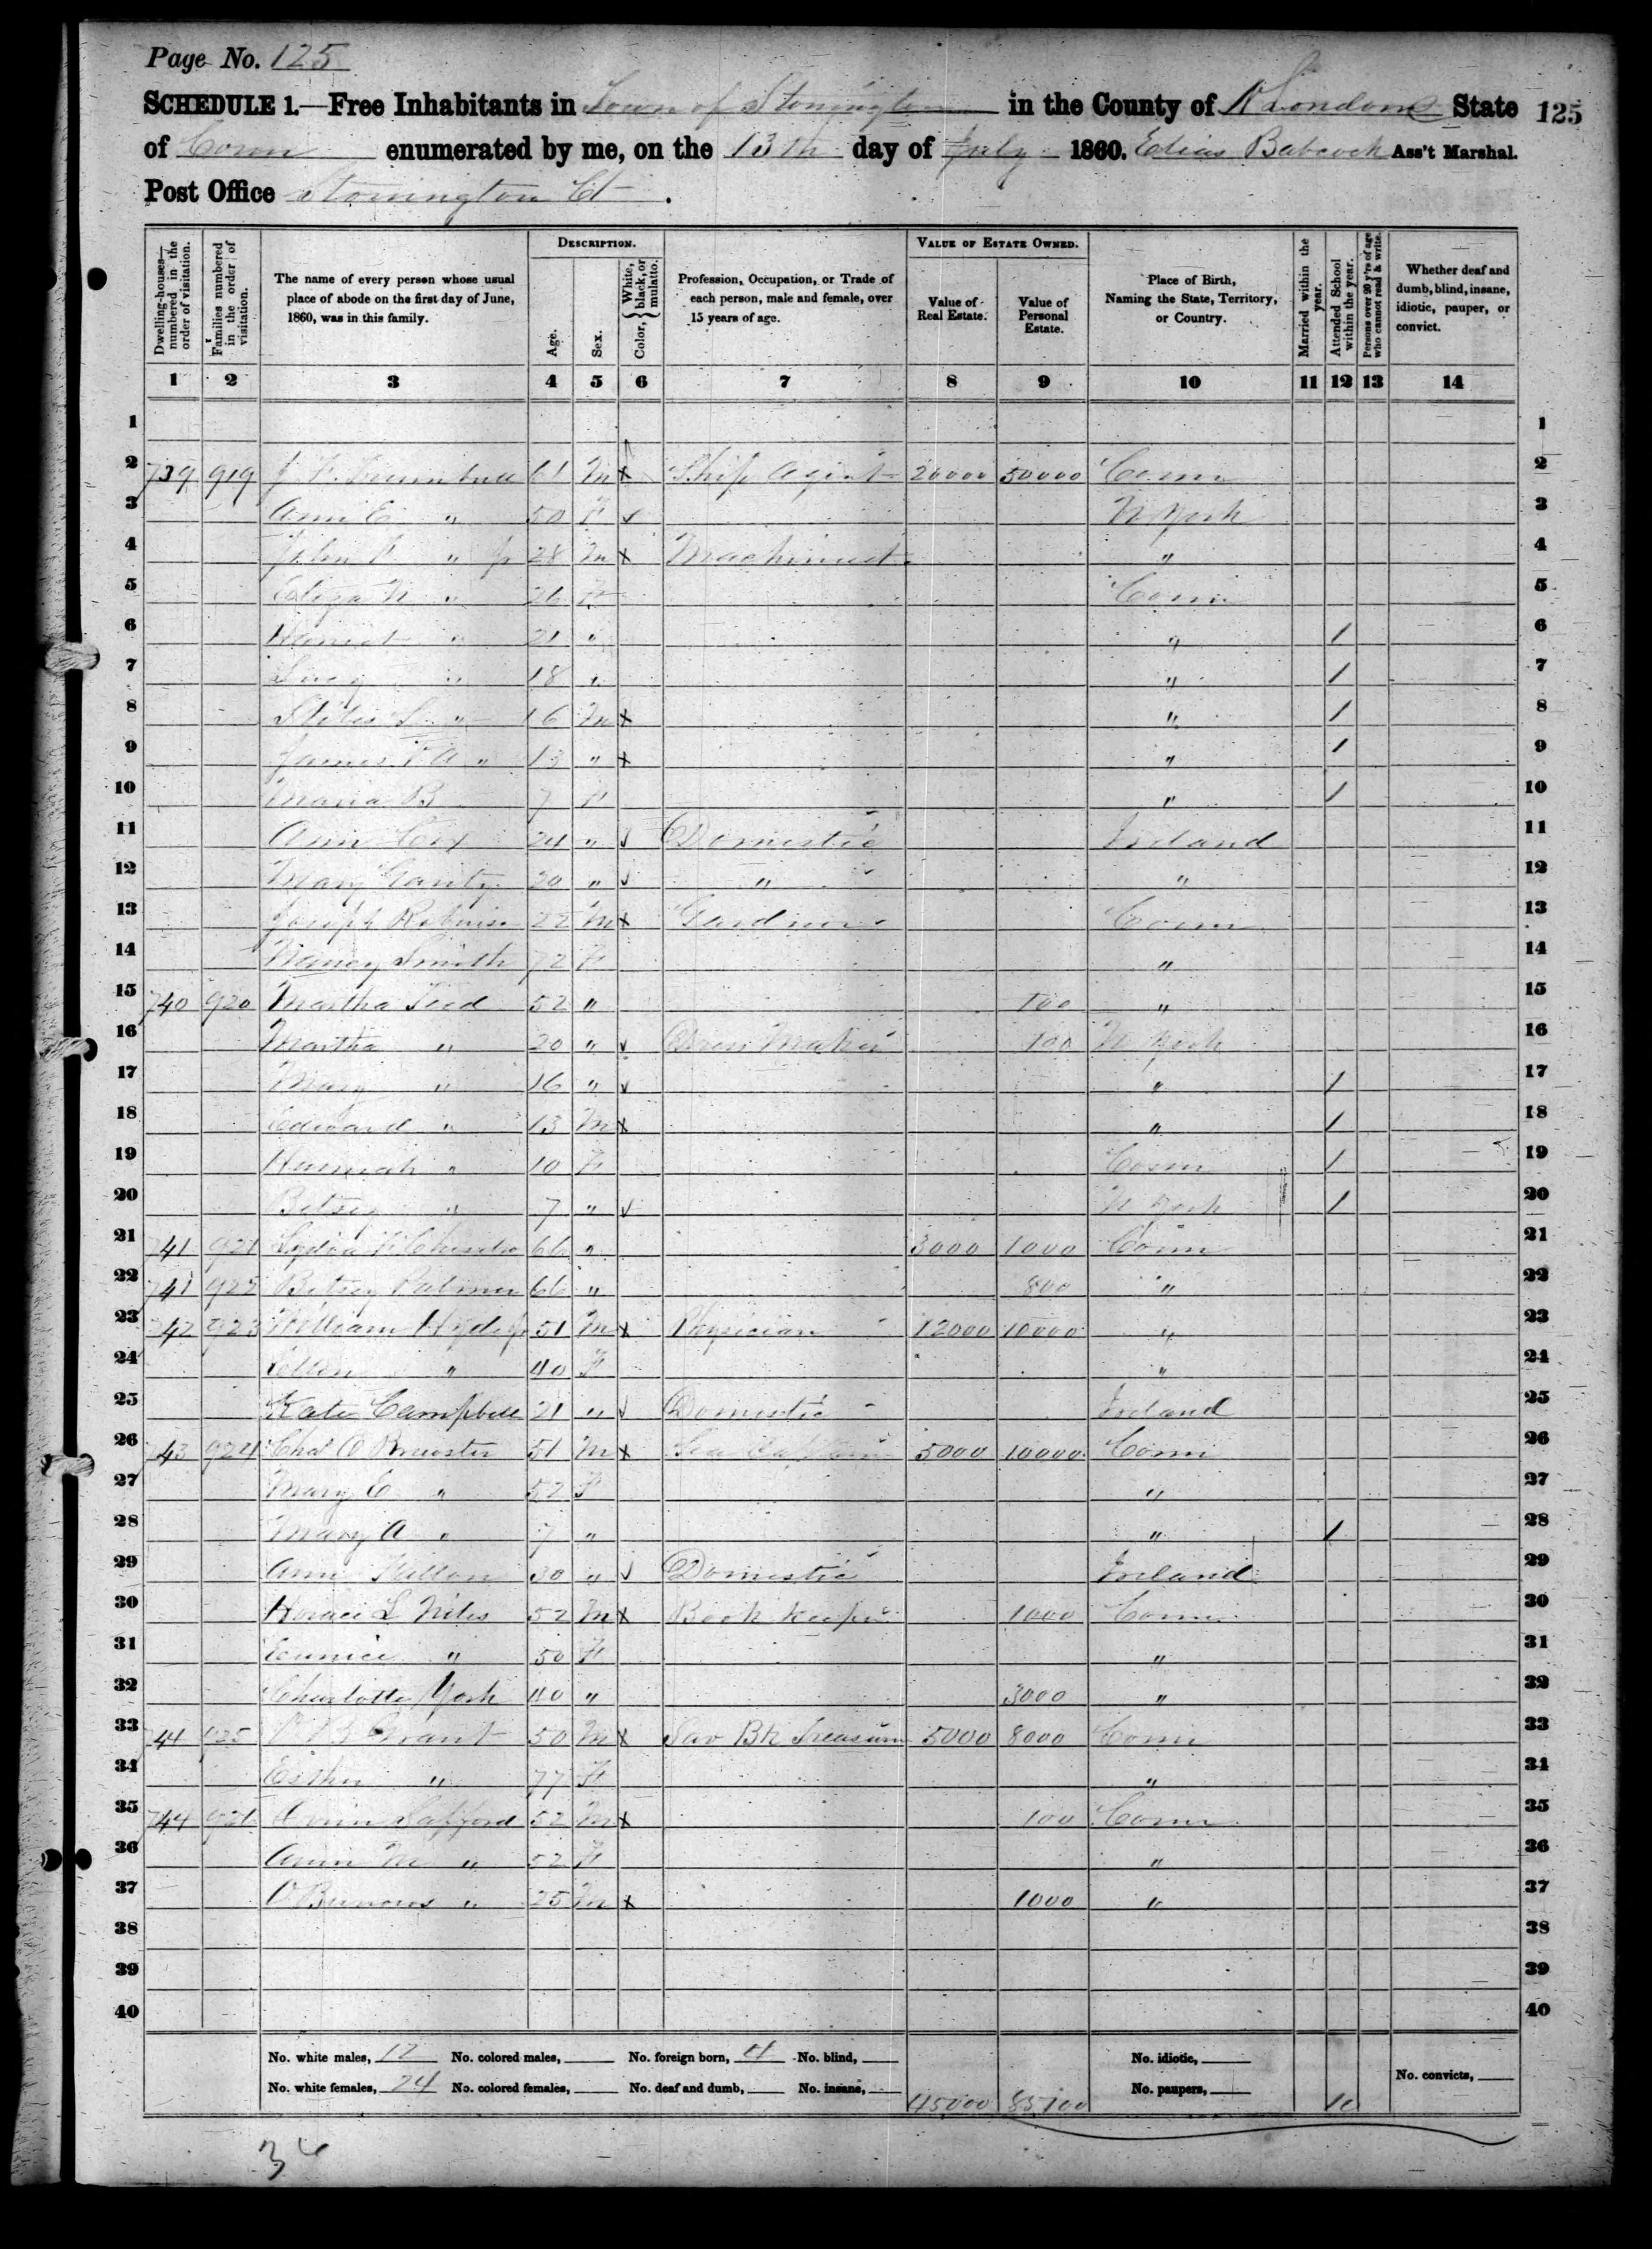 Page No. 125
SCHEDULE 1.—Free Inhabitants in Town of Stonington in the County of N London State 125
of Conn enumerated by me, on the 13th day of July 1860. Elias Babcock Ass't Marshal.
Post Office Stonington Ct.
Dwelling-houses—numbered in the order of visitation.
Families numbered in the order of visitation.
The name of every person whose usual place of abode on the first day of June, 1860, was in this family.
DESCRIPTION.
Age.
Sex.
Color, { White, black, or mulatto.
Profession, Occupation, or Trade of each person, male and female, over 15 years of age.
VALUE OF ESTATE OWNED.
Value of Real Estate.
Value of Personal Estate.
Place of Birth, Naming the State, Territory, or Country.
Married within the year.
Attended School within the year.
Persons over 20 y'rs of age who cannot read & write.
Whether deaf and dumb, blind, insane, idiotic, pauper, or convict.
1 2 3 4 5 6 7 8 9 10 11 12 13 14
1 1
2 739 919 J. F. Trumbull 61 M x Ship Agent 20000 50000 Conn 2
3 Ann E " 50 F ✓ N York 3
4 John F " Jr 28 M x Machinist " 4
5 Eliza N " 26 F Conn 5
6 Harriet " 21 " " / 6
7 Lucy " 18 " " / 7
8 Stiles S " 16 M x " / 8
9 James V A " 13 " x " / 9
10 Maria B 7 F " / 10
11 Ann Cox 24 " ✓ Domestic Ireland 11
12 Mary Ganty 20 " ✓ " " 12
13 Joseph Robinson 22 M x Gardner Conn 13
14 Nancy Smith 72 F " 14
15 740 920 Martha Teed 52 " 100 " 15
16 Martha " 20 " ✓ Dress Maker 100 N York 16
17 Mary " 16 " ✓ " / 17
18 Edward " 13 M x " / 18
19 Hannah " 10 F Conn / 19
20 Betsey " 7 " ✓ N York / 20
21 741 921 Lydia F 66 " 3000 1000 Conn 21
22 741 922 Betsey Palmer 66 " 800 " 22
23 742 923 William Hyde Jr 51 M x Physician 12000 10000 " 23
24 Ellen " 40 F " 24
25 Kate Campbell 21 " ✓ Domestic Ireland 25
26 743 924 Chas O Brewster 51 M x Sea Captain 5000 10000 Conn 26
27 Mary E " 52 F " 27
28 Mary A " 7 " " / 28
29 Ann 30 " ✓ Domestic Ireland 29
30 Horace L Niles 52 M x Book Keeper 1000 Conn 30
31 Eunice " 50 F " 31
32 Charlotte York 40 " 3000 " 32
33 744 925 Grant 50 M x Sav Bk Treasurer 5000 8000 Conn 33
34 Esther " 77 F " 34
35 744 926 Safford 52 M x 100 Conn 35
36 Ann M " 52 F " 36
37 O Burrows " 25 M x 1000 " 37
38 38
39 39
40 40
No. white males, 12 No. colored males, No. foreign born, 4 No. blind, No. idiotic,
No. white females, 24 No. colored females, No. deaf and dumb, No. insane, 45000 85100 No. paupers, No. convicts,
36